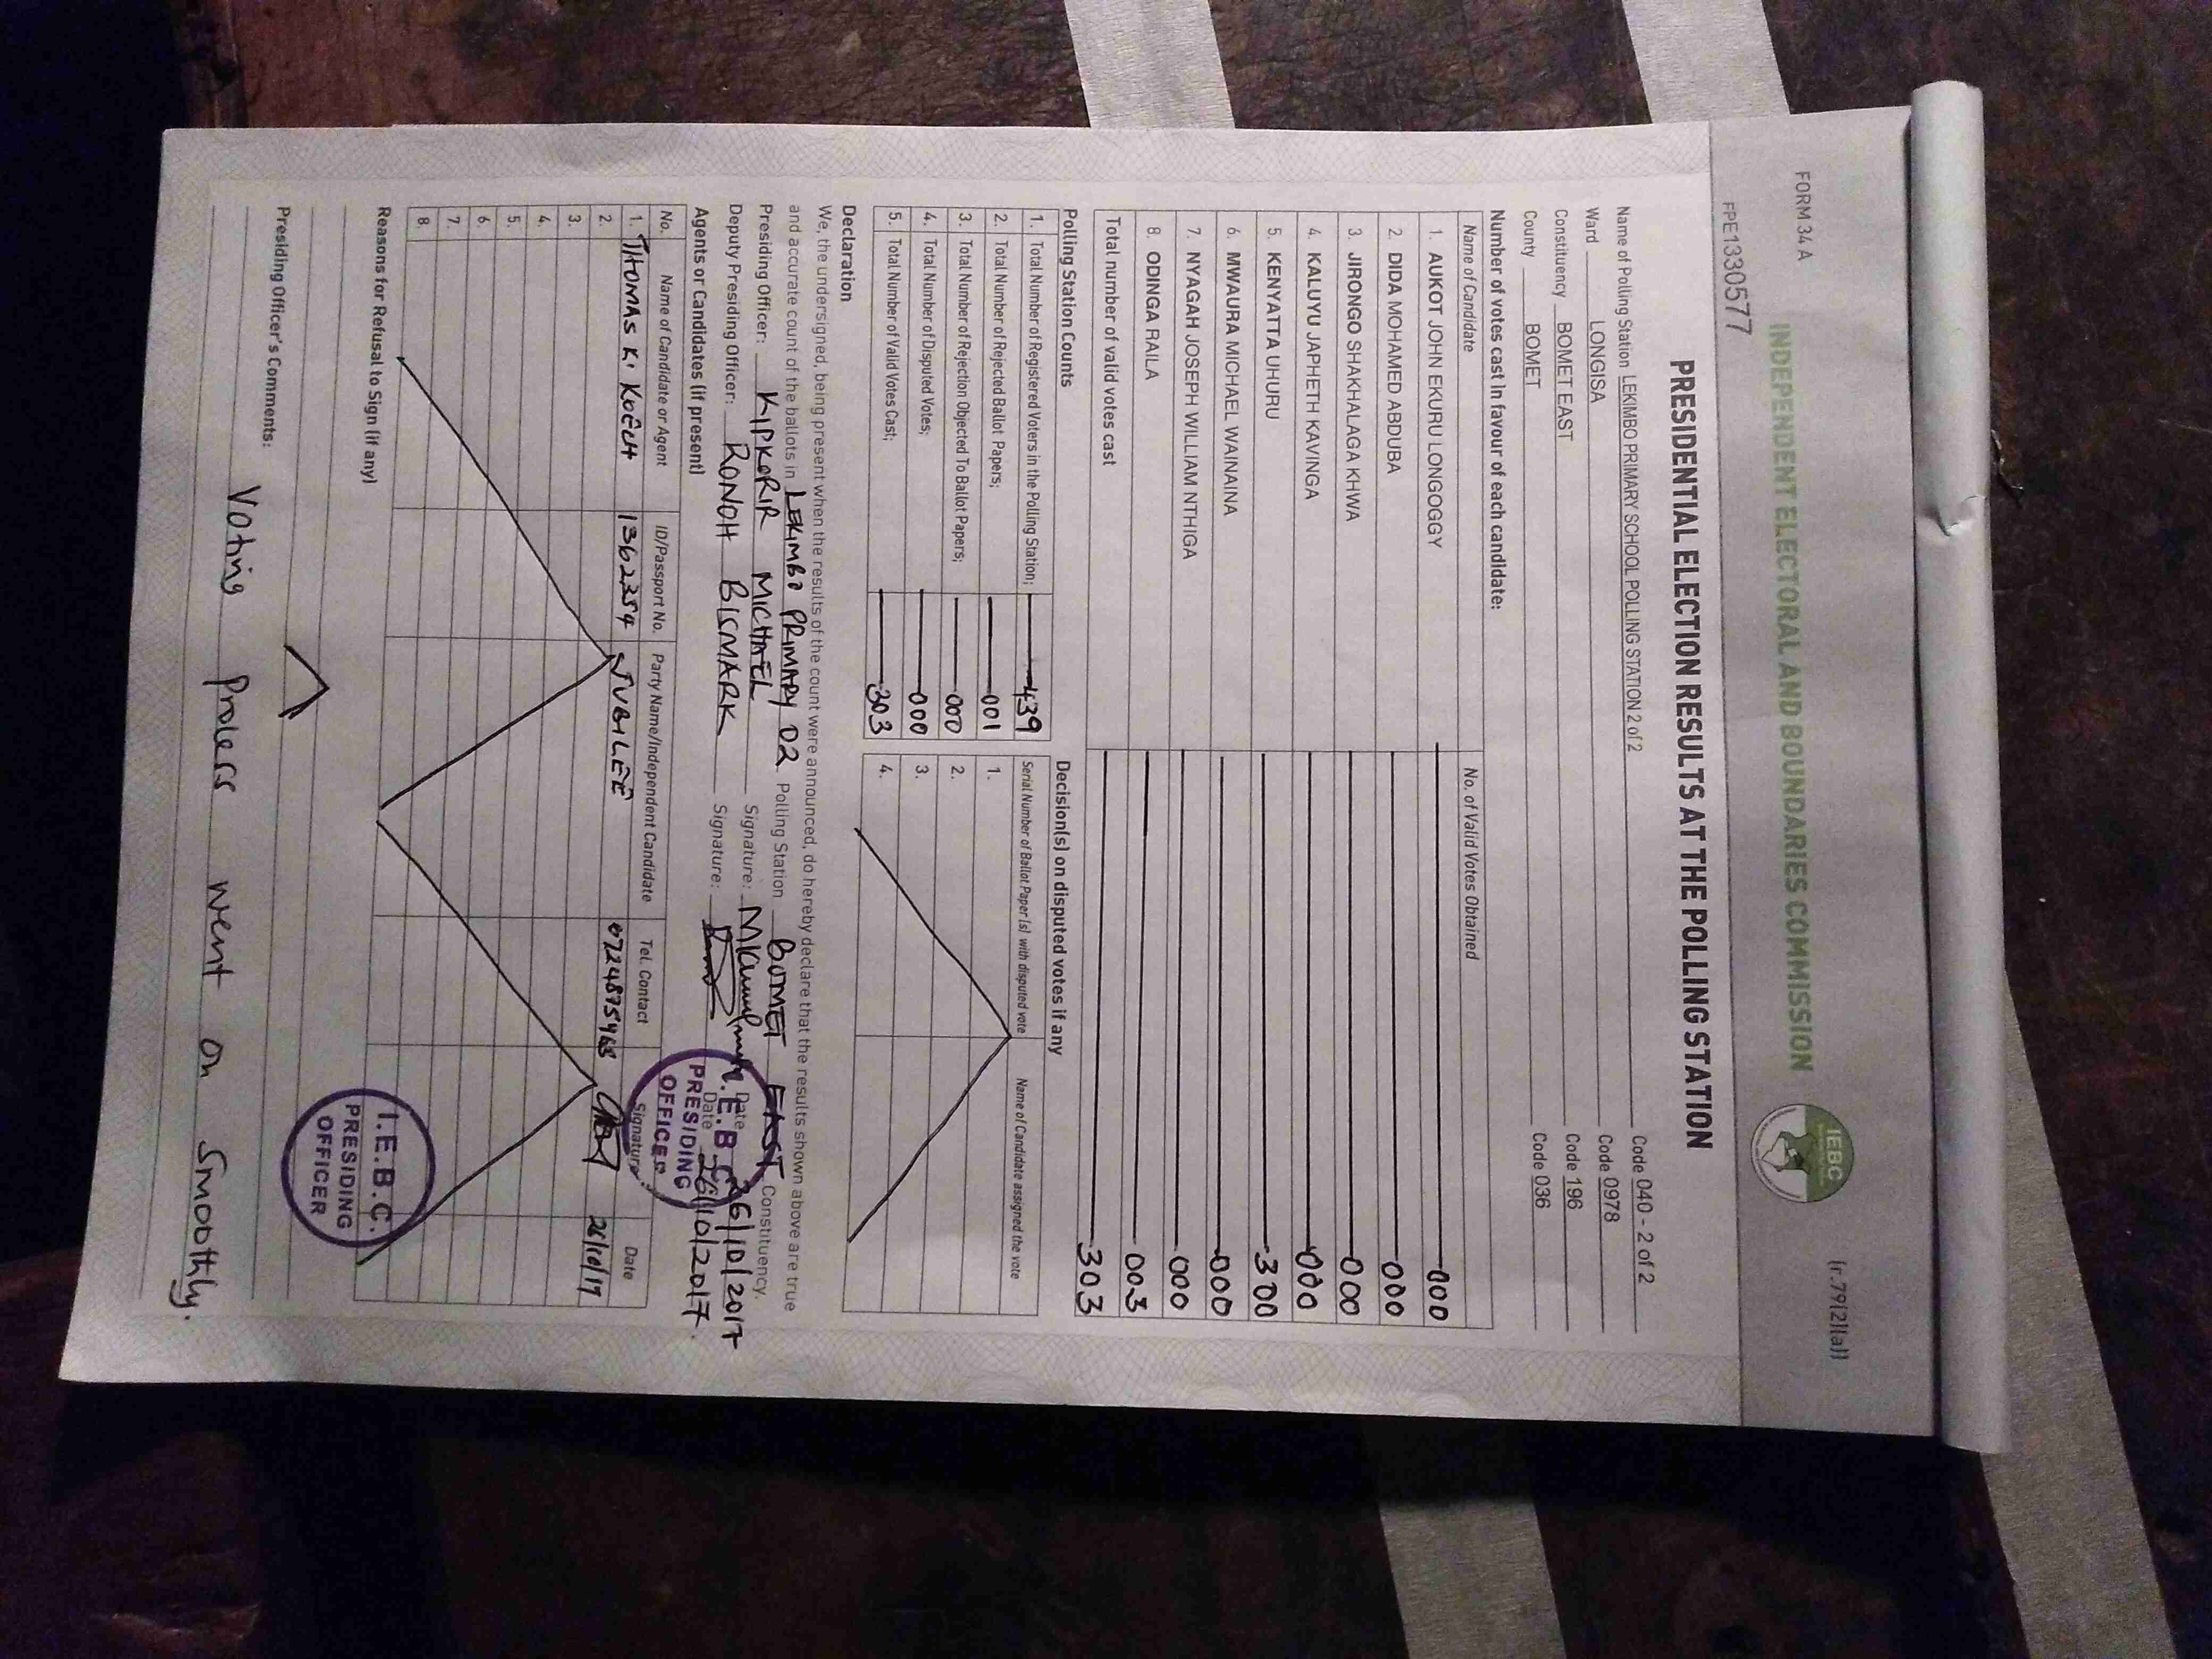 FORM 34 A
(r.79(2)(a))
INDEPENDENT ELECTORAL AND BOUNDARIES COMMISSION
IEBC
FPE1330577
PRESIDENTIAL ELECTION RESULTS AT THE POLLING STATION
Name of Polling Station LEKIMBO PRIMARY SCHOOL POLLING STATION 2 of 2 Code 040 - 2 of 2
Ward LONGISA Code 0978
Constituency BOMET EAST Code 196
County BOMET Code 036
Number of votes cast in favour of each candidate:
Name of Candidate No. of Valid Votes Obtained
1. AUKOT JOHN EKURU LONGOGGY 000
2. DIDA MOHAMED ABDUBA 000
3. JIRONGO SHAKHALAGA KHWA 000
4. KALUYU JAPHETH KAVINGA 000
5. KENYATTA UHURU 300
6. MWAURA MICHAEL WAINAINA 000
7. NYAGAH JOSEPH WILLIAM NTHIGA 000
8. ODINGA RAILA 003
Total number of valid votes cast 303
Polling Station Counts
1. Total Number of Registered Voters in the Polling Station; 439
2. Total Number of Rejected Ballot Papers; 001
3. Total Number of Rejection Objected To Ballot Papers; 000
4. Total Number of Disputed Votes; 000
5. Total Number of Valid Votes Cast; 303
Decision(s) on disputed votes if any
Serial Number of Ballot Paper (s) with disputed vote Name of Candidate assigned the vote
1.
2.
3.
4.
Declaration
We, the undersigned, being present when the results of the count were announced, do hereby declare that the results shown above are true
and accurate count of the ballots in LEKIMBO PRIMARY 02 Polling Station BOMET EAST Constituency.
Presiding Officer: KIPKORIR MICHAEL Signature: Date 26/10/2017
Deputy Presiding Officer: RONOH BISMARK Signature: Date 26/10/2017.
I.E.B.C.
PRESIDING
OFFICER
Agents or Candidates (if present)
No. Name of Candidate or Agent ID/Passport No. Party Name/Independent Candidate Tel. Contact Signature Date
1. THOMAS K. KOECH 1362354 JUBILEE 0724875468 26/10/17
2.
3.
4.
5.
6.
7.
8.
Reasons for Refusal to Sign (if any)
I.E.B.C.
PRESIDING
OFFICER
Presiding Officer's Comments:
Voting proless went on smoothly.